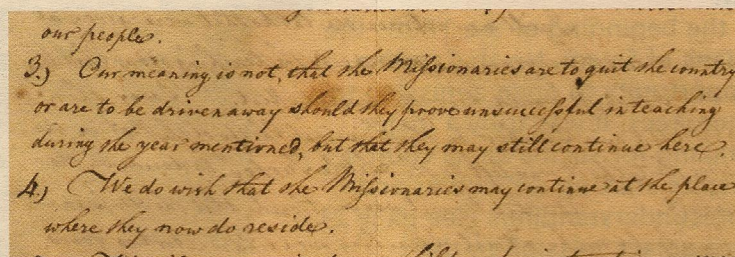 our people.
3.) Our meaning is not, that the Missionaries are to quit the country
or are to be driven away should they prove unsuccessful in teaching
during the year mentioned, but that they may still continue here.
4.) We do wish that the Missionaries may continue at the place
where they now do reside.